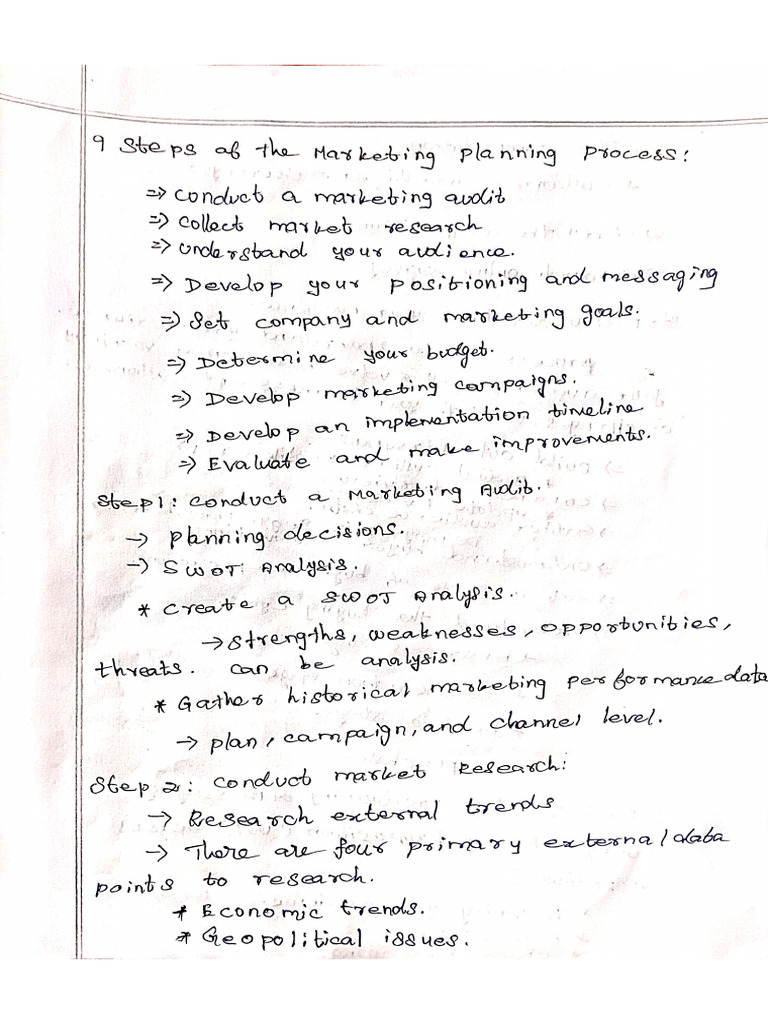 9 Steps of the Marketing Planning Process:
=> Conduct a marketing audit
=> Collect market research
=> Understand your audience.
=> Develop your positioning and messaging
=> Set company and marketing goals.
=> Determine your budget.
=> Develop marketing campaigns.
=> Develop an implementation timeline
=> Evaluate and make improvements.
Step1: Conduct a Marketing Audit.
→ Planning decisions.
→ SWOT Analysis.
* Create a SWOT Analysis.
→ Strengths, weaknesses, opportunities,
threats. can be analysis.
* Gather historical marketing performance data
→ plan, campaign, and channel level.
Step 2: Conduct market Research:
→ Research external trends
→ There are four primary external data
points to research.
* Economic trends.
* Geopolitical issues.